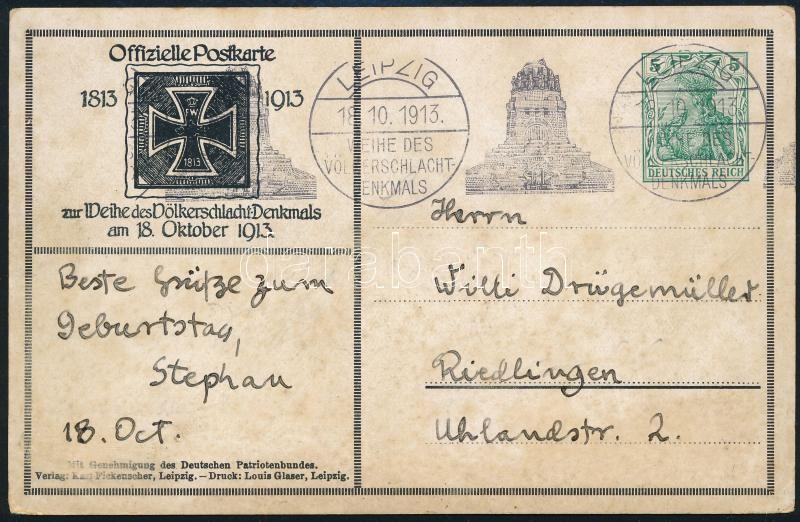 Offizielle Postkarte
1813 1913
FW
1813
zur Weihe des Völkerschlacht-Denkmals
am 18. Oktober 1913.
LEIPZIG
18.10.1913.
WEIHE DES
VÖLKERSCHLACHT-
DENKMALS
LEIPZIG
5 5
DEUTSCHES REICH
VÖLKERSCHLACHT-
DENKMALS
Herrn
Willi Drügemüller
Riedlingen
Uhlandstr. 2.
Beste Grüße zum
Geburtstag,
Stephan
18. Oct.
Mit Genehmigung des Deutschen Patriotenbundes.
Verlag: Karl Fickenscher, Leipzig. — Druck: Louis Glaser, Leipzig.
darabanth